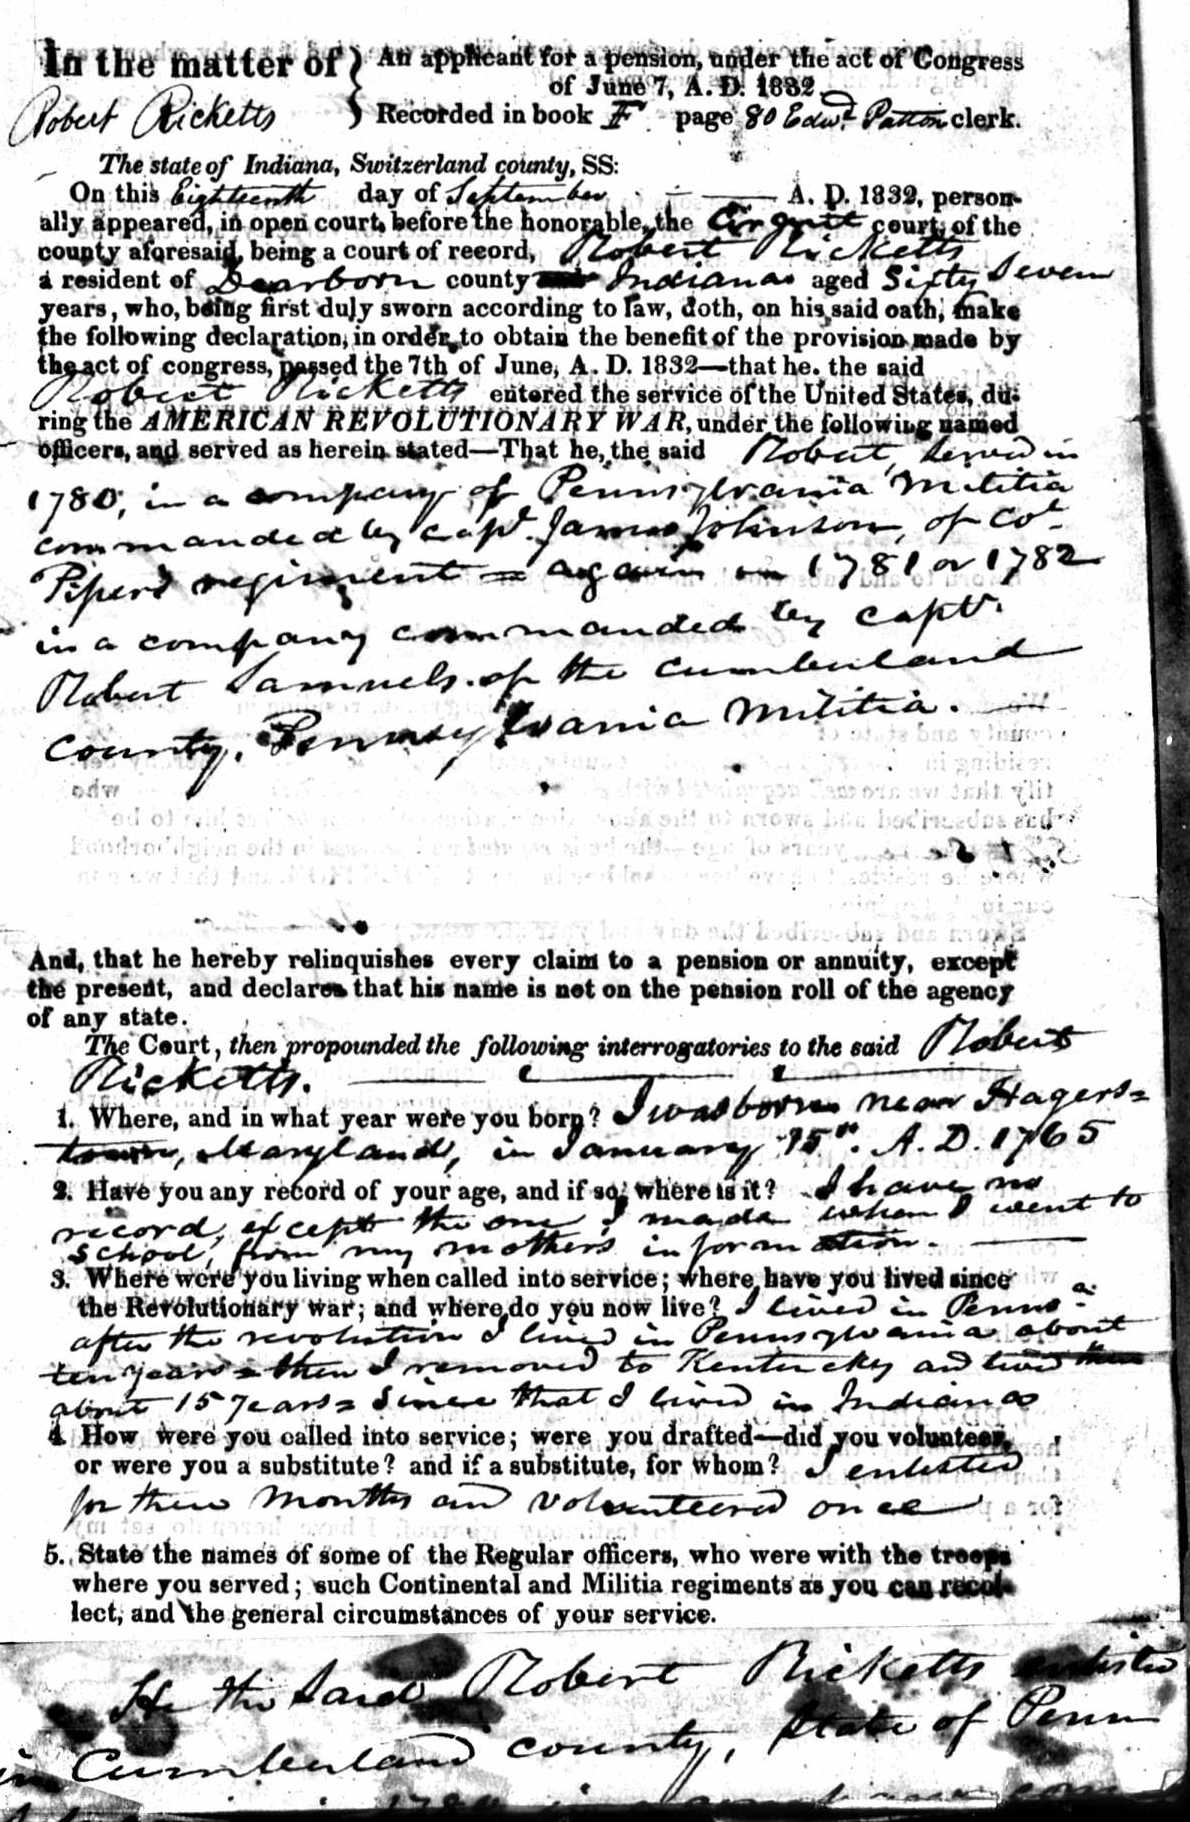 In the matter of } An applicant for a pension, under the act of Congress
of June 7, A. D. 1832.
Robert Ricketts } Recorded in book F. page 80 Edwd. Patton clerk.
The state of Indiana, Switzerland county, SS:
On this Eighteenth day of September A. D. 1832, person-
ally appeared, in open court, before the honorable, the Circuit court, of the
county aforesaid, being a court of record, Robert Ricketts
a resident of Dearborn county Indiana aged Sixty Seven
years, who, being first duly sworn according to law, doth, on his said oath, make
the following declaration, in order, to obtain the benefit of the provision made by
the act of congress, passed the 7th of June, A. D. 1832—that he. the said
Robert Ricketts entered the service of the United States, du-
ring the AMERICAN REVOLUTIONARY WAR, under the following named
officers, and served as herein stated—That he, the said Robert, Served in
1780, in a company of Pennsylvania Militia
commanded by capt. James Johnson, of Col.
Piper's regiment = again in 1781 or 1782
in a company commanded by capt.
Robert Samuels of the cumberland
county, Pennsylvania Militia.
And, that he hereby relinquishes every claim to a pension or annuity, except
the present, and declares that his name is not on the pension roll of the agency
of any state.
The Court, then propounded the following interrogatories to the said Robert
Ricketts.
1. Where, and in what year were you born? I was born near Hagers=
town, Maryland, in January 15th. A. D. 1765
2. Have you any record of your age, and if so, where is it? I have no
record, except the one I made when I went to
School, from my mothers information.
3. Where were you living when called into service; where have you lived since
the Revolutionary war; and where do you now live? I lived in Penns.a
after the revolution I lived in Pennsylvania about
ten years = then I removed to Kentucky and lived there
about 15 years = Since that I lived in Indiana
4. How were you called into service; were you drafted—did you volunteer,
or were you a substitute? and if a substitute, for whom? I enlisted
for three months and volunteered once
5. State the names of some of the Regular officers, who were with the troops
where you served; such Continental and Militia regiments as you can recol-
lect, and the general circumstances of your service.
He the Said Robert Ricketts enlisted
in Cumberland county, State of Penn